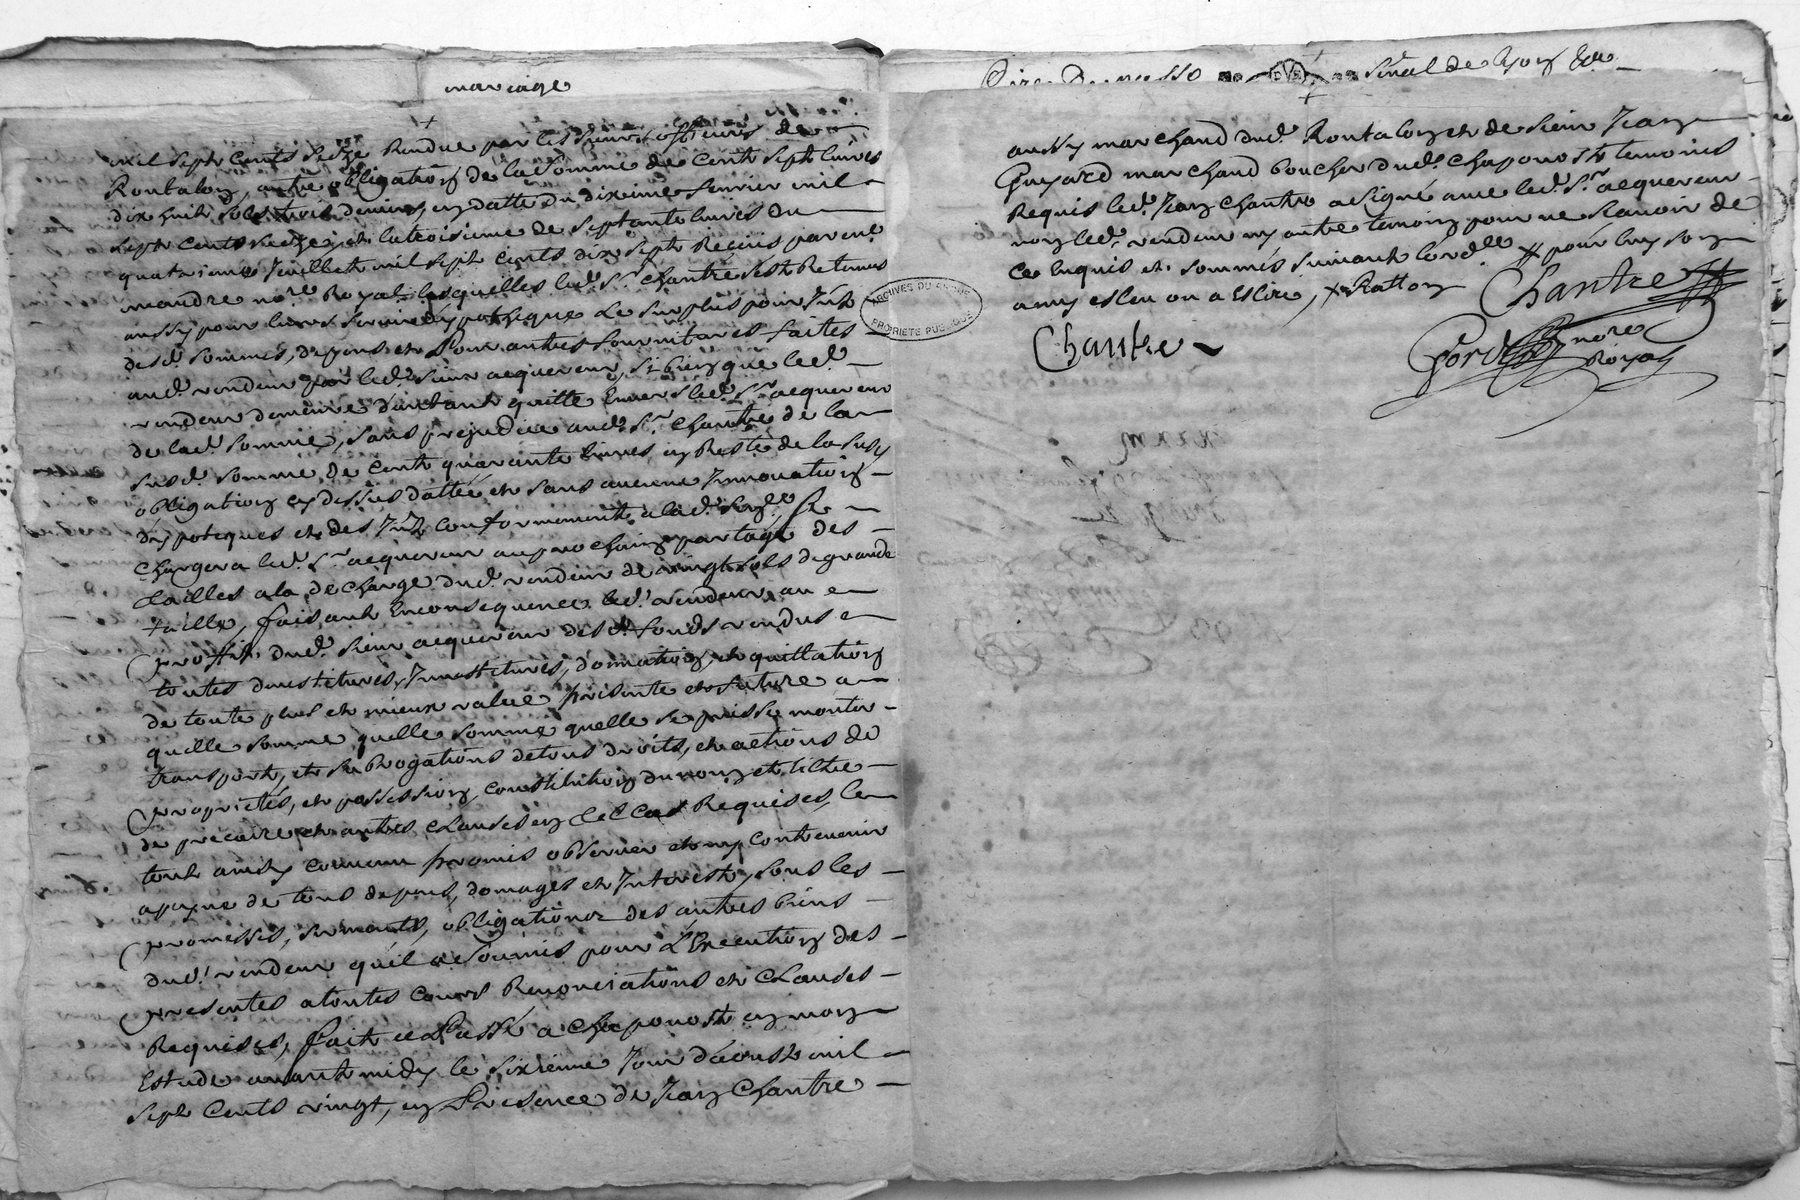 mariage
mil sept cents seize Rendue par les sieurs officiers de
Rontalon, autre obligation de la somme de cent sept livres
dix huit sols trois deniers, en datte du dixieme fevrier mil
sept cents seize, et la troisieme de septante livres du
quatrieme Juillet mil sept cents dix sept Receus par me
mandre nore Royal lesquelles led. Sr. Chantre s'est Retenues
aussy pour luy servir dypotheque Le surplus pour
desd. sommes, depens et Pour autres fournitures faites
aud. vendeur par led. sieur acquereur, si bien que led.
vendeur demeure d'autant quitte Envers led. Sr. acquereur
de lad. somme, sans prejudice aud. Sr. Chantre de la
susd. somme de cent quarante livres en Reste de la susd
obligation cy dessus dattée et sans aucune Innovation
dypoteques et des conformement a lad. Se
Chargera led. Sr. acquereur au prochain partage des
tailles a la decharge dud. vendeur de vingt sols de grande
taille, faisant En consequence led. vendeur au
proffit dud. sieur acquereur desd. fonds vendus
toutes devestitures, Investitures, donnation, et quittation
de toute plus et mieux value presente et future a
quelle somme quelle somme quelle se puisse monter
transport, et subrogations de tous droits, et actions de
proprietés, et possession, constitution du nom et titre
de precaire et autres clauses en tel cas Requises, le
tout ainsy convenu promis observer et ny contrevenir
a peyne de tous depens, domages et Interests, sous les
promesses, serments, obligations des autres biens
dud. vendeur quil a soumis pour L'Execution des
presentes a toutes cours Renonciations et Clauses
Requises, fait et Passé a Chaponost en mon
Estude avant midy le sixieme Jour d'aoust mil
sept cents vingt, en Presence de Jean Chantre
Sénal de Lyon
aussy marchand dud. Rontalon et de sieur Jean
Guyard marchand boucher dud. Chaponost temoins
Requis led. Jean Chantre a signé avec led. Sr. acquereur
non led. vendeur ny autre temoin pour ne scavoir de
ce Enquis et sommés suivant l'ord.ce pour luy son
amy esleu ou a Eslire, Ratton
Chantre
Chantre
nore
Royal
ARCHIVES DU RHONE
PROPRIETE PUBLIQUE